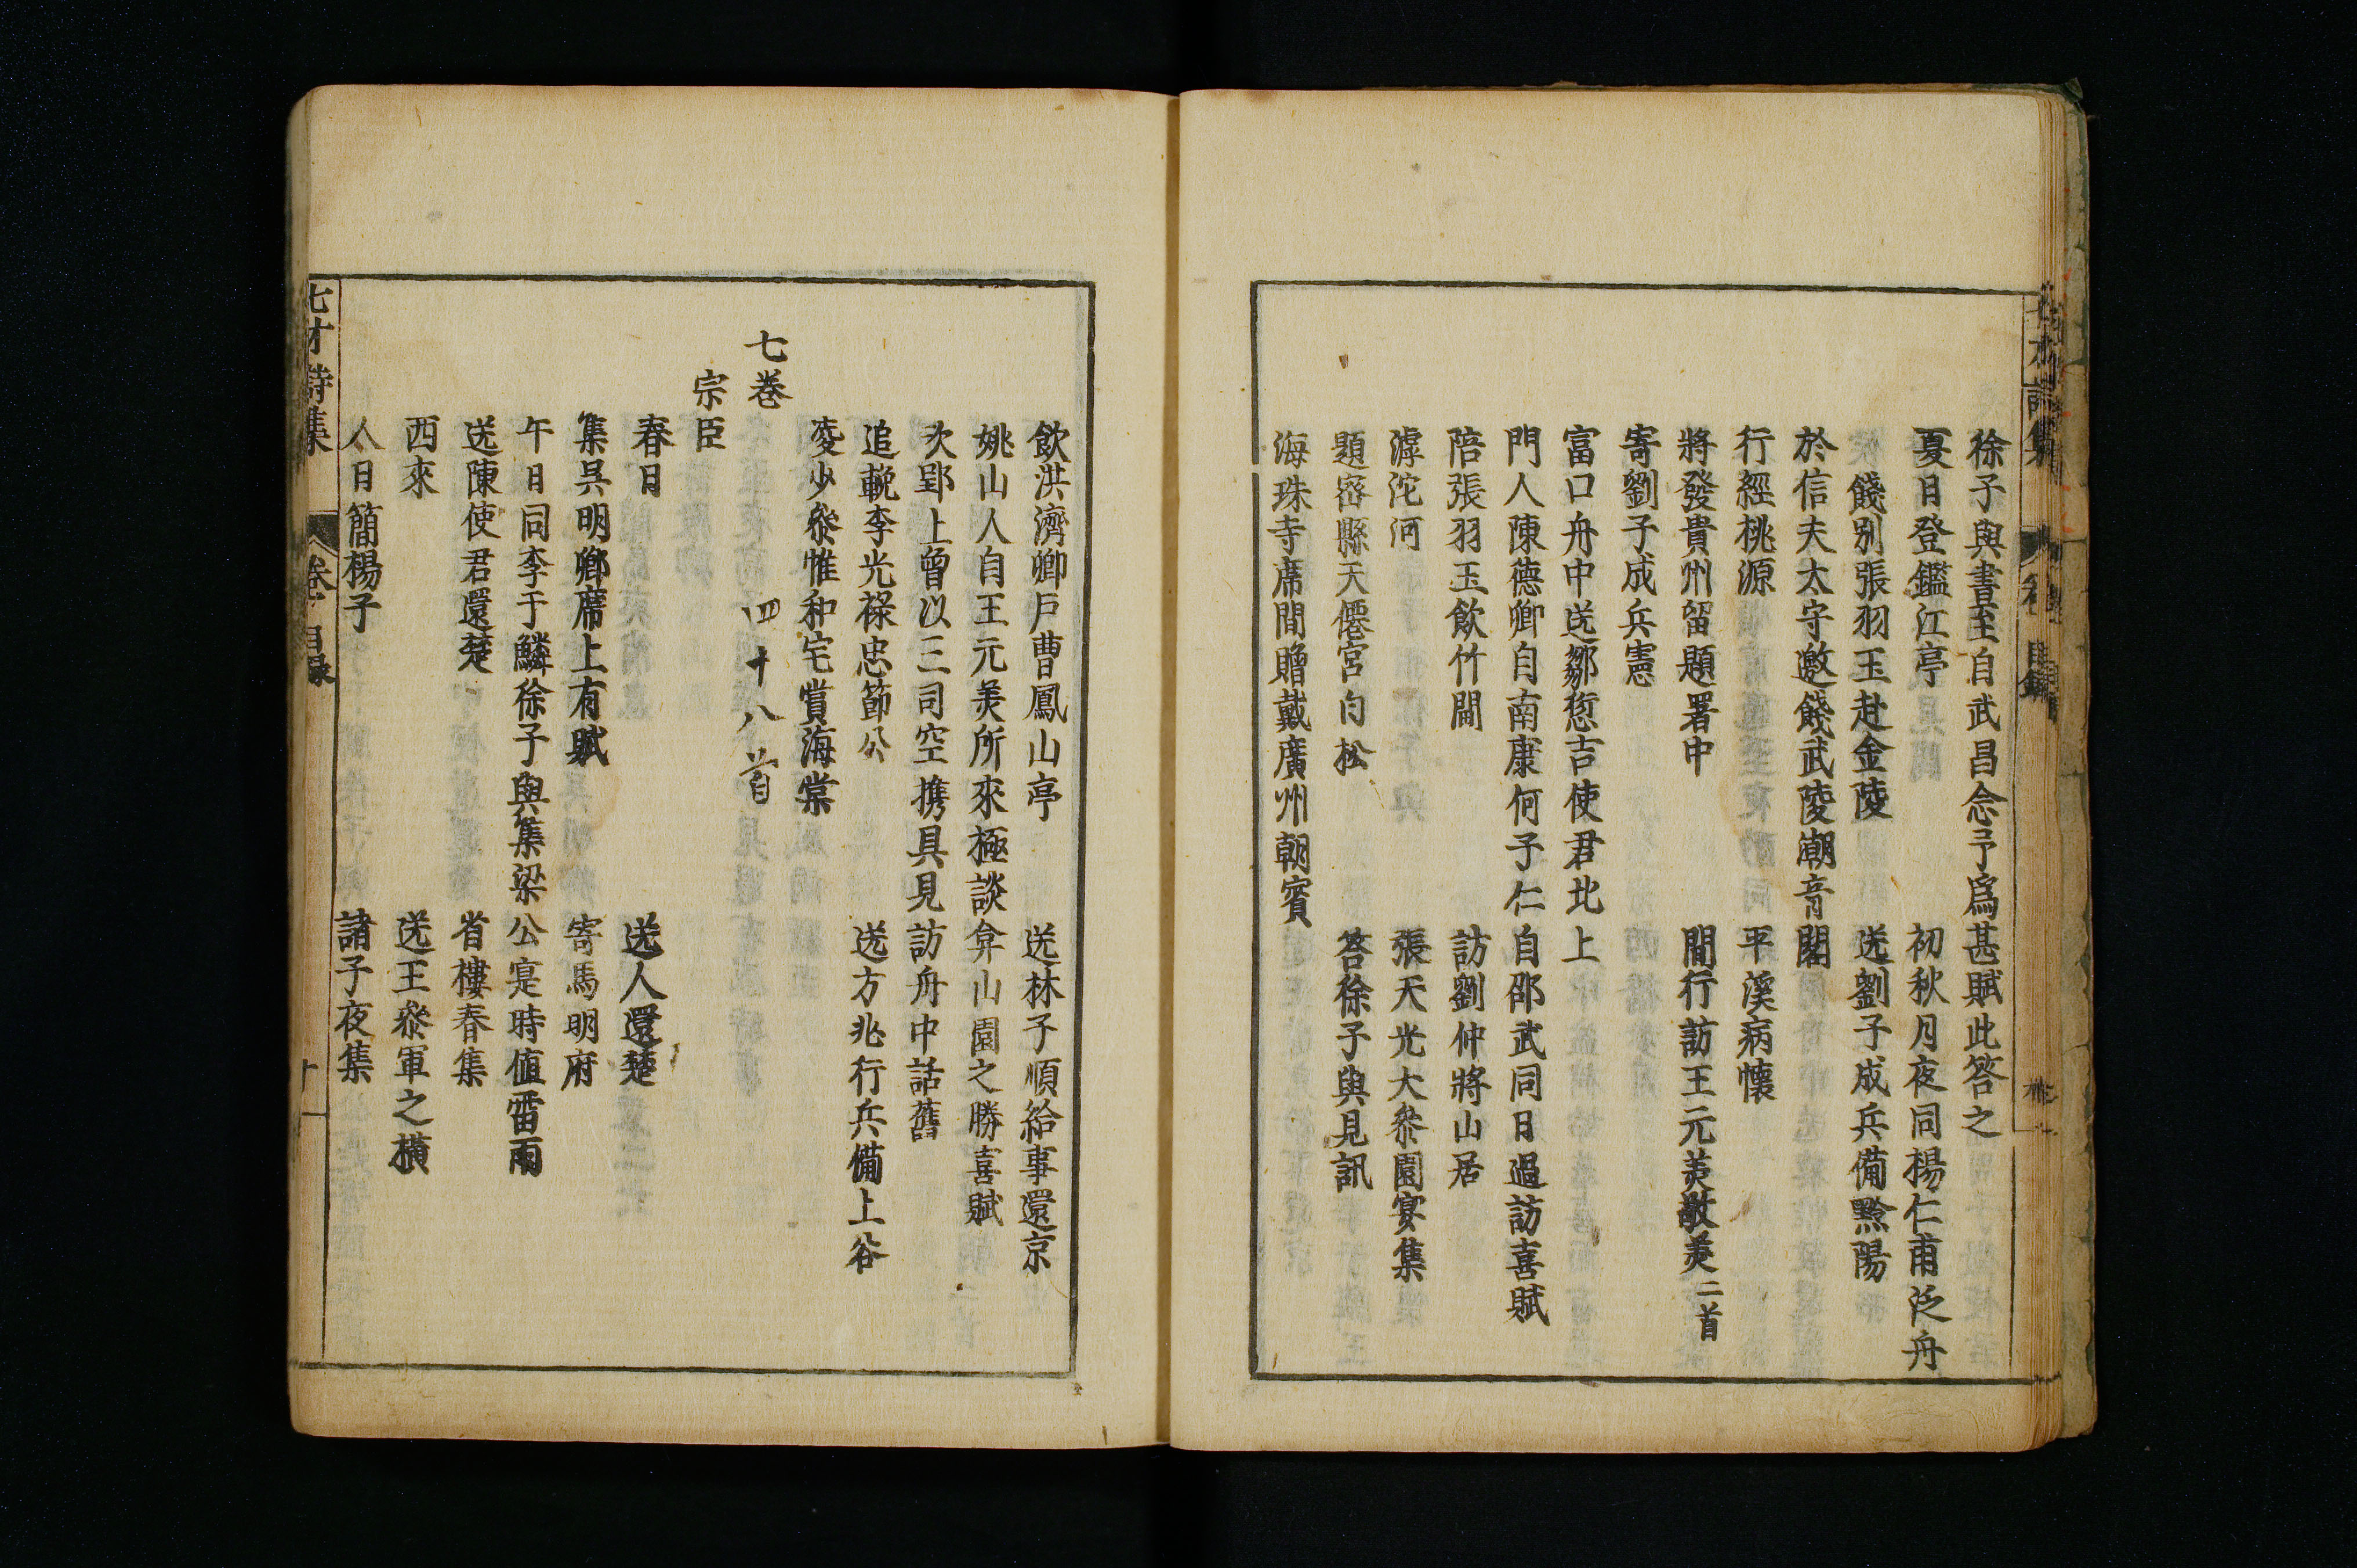 徐子與書至自武昌念予爲甚賦此答之
夏日登鑑江亭 初秋月夜同楊仁甫泛舟
餞別張羽玉赴金陵 送劉子成兵備黔陽
於信夫太守邀餞武陵潮音閣
行經桃源 平溪病懷
將發貴州留題署中 間行訪王元美敬美二首
寄劉子成兵憲
富口舟中送鄒愸吉使君北上
門人陳德卿自南康何子仁自邵武同日過訪喜賦
陪張羽玉飲竹間 訪劉仲將山居
滹沱河 張天光大叅園宴集
題密縣天僊宮白松 答徐子與見訊
海珠寺席間贈戴廣州朝賓
飲洪濟卿戶曹鳳山亭 送林子順給事還京
姚山人自王元美所來極談弇山園之勝喜賦
次郢上曾以三司空携具見訪舟中話舊
追輓李光祿忠節公 送方兆行兵備上谷
麥少叅惟和宅賞海棠
七卷 四十八首
宗臣
春日 送人還楚
集吳明卿席上有賦 寄馬明府
午日同李于鱗徐子與集梁公寔時值雷雨
送陳使君還楚 省樓春集
西來 送王叅軍之橫
人日簡楊子 諸子夜集
七才詩集 卷 目录 十